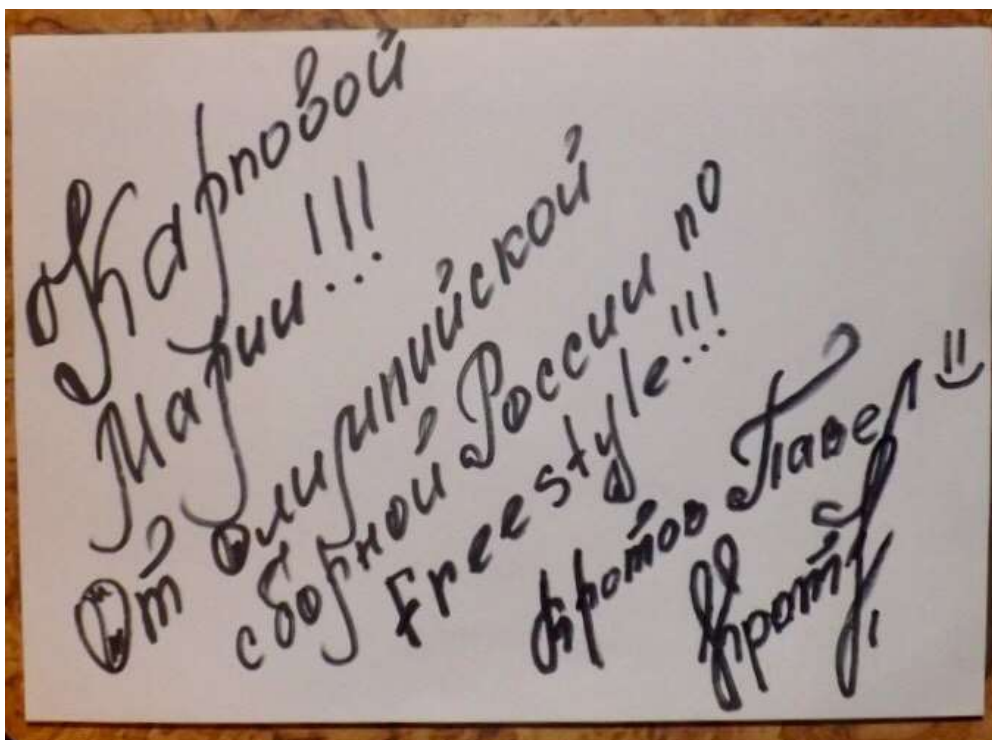 Карповой
Марии!!!
От олимпийской
сборной России по
Freestyle!!!
Кротов Павел